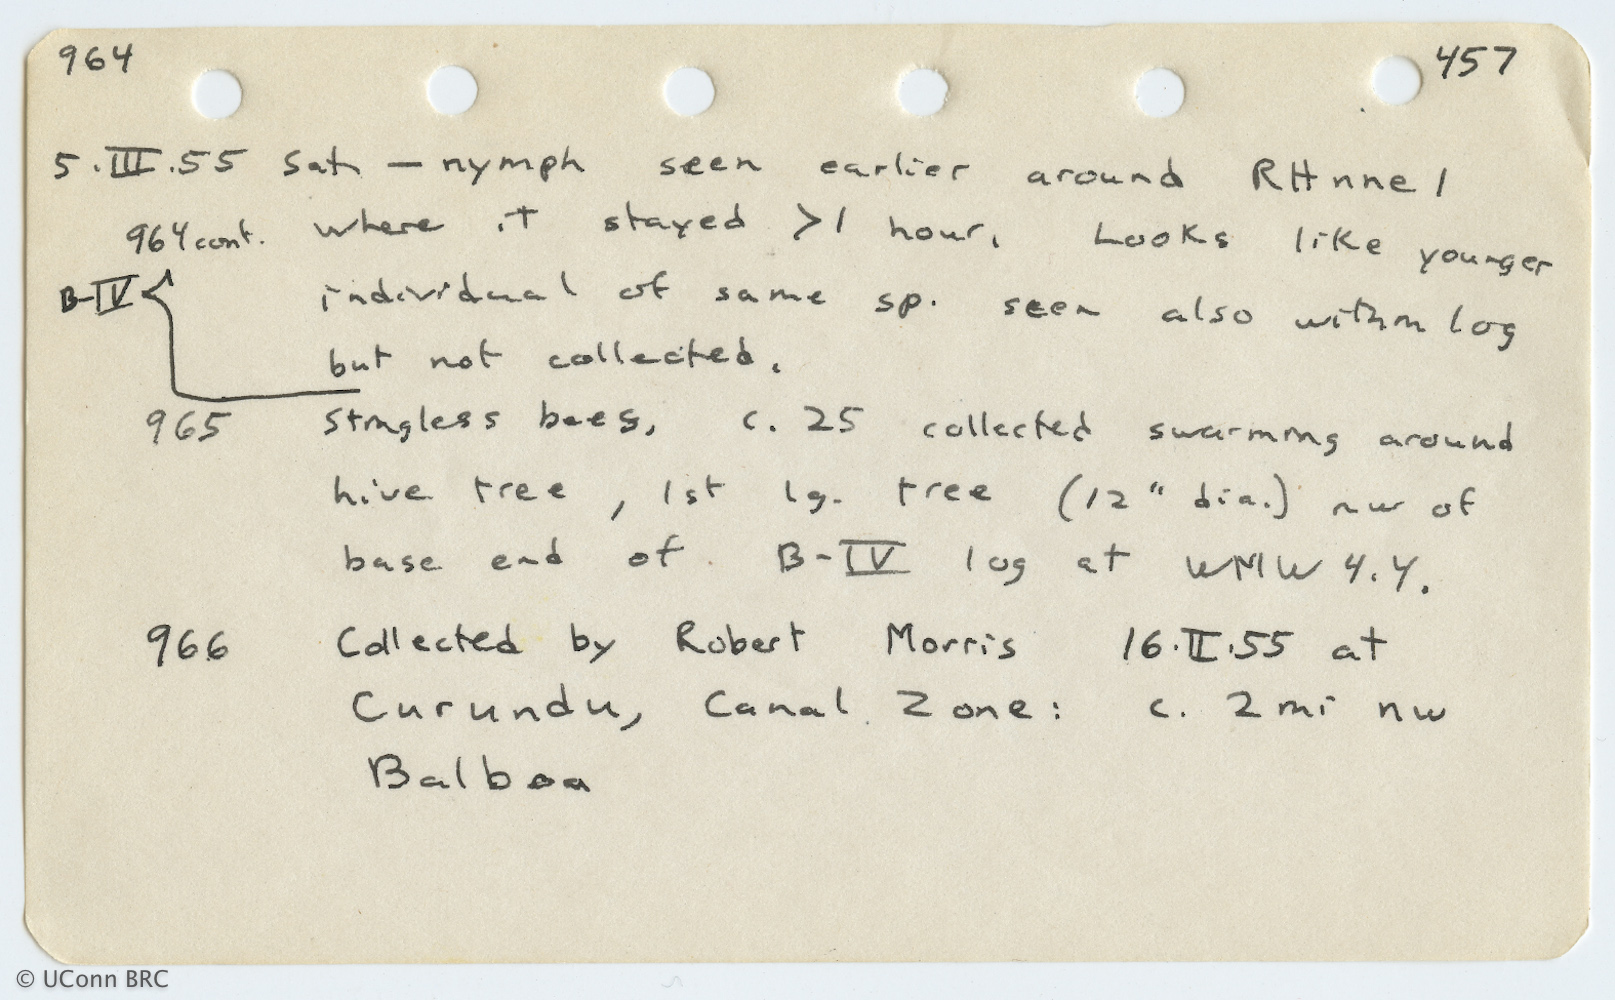 964 457
5.III.55 Sat — nymph seen earlier around RHnnel
964 cont. where it stayed >1 hour. Looks like younger
B-IV individual of same sp. seen also within log
but not collected.
965 Stingless bees, c. 25 collected swarming around
hive tree, 1st lg. tree (12" dia.) nw of
base end of B-IV log at WMW 4.4.
966 Collected by Robert Morris 16.II.55 at
Curundu, Canal Zone: c. 2 mi nw
Balboa
© UConn BRC